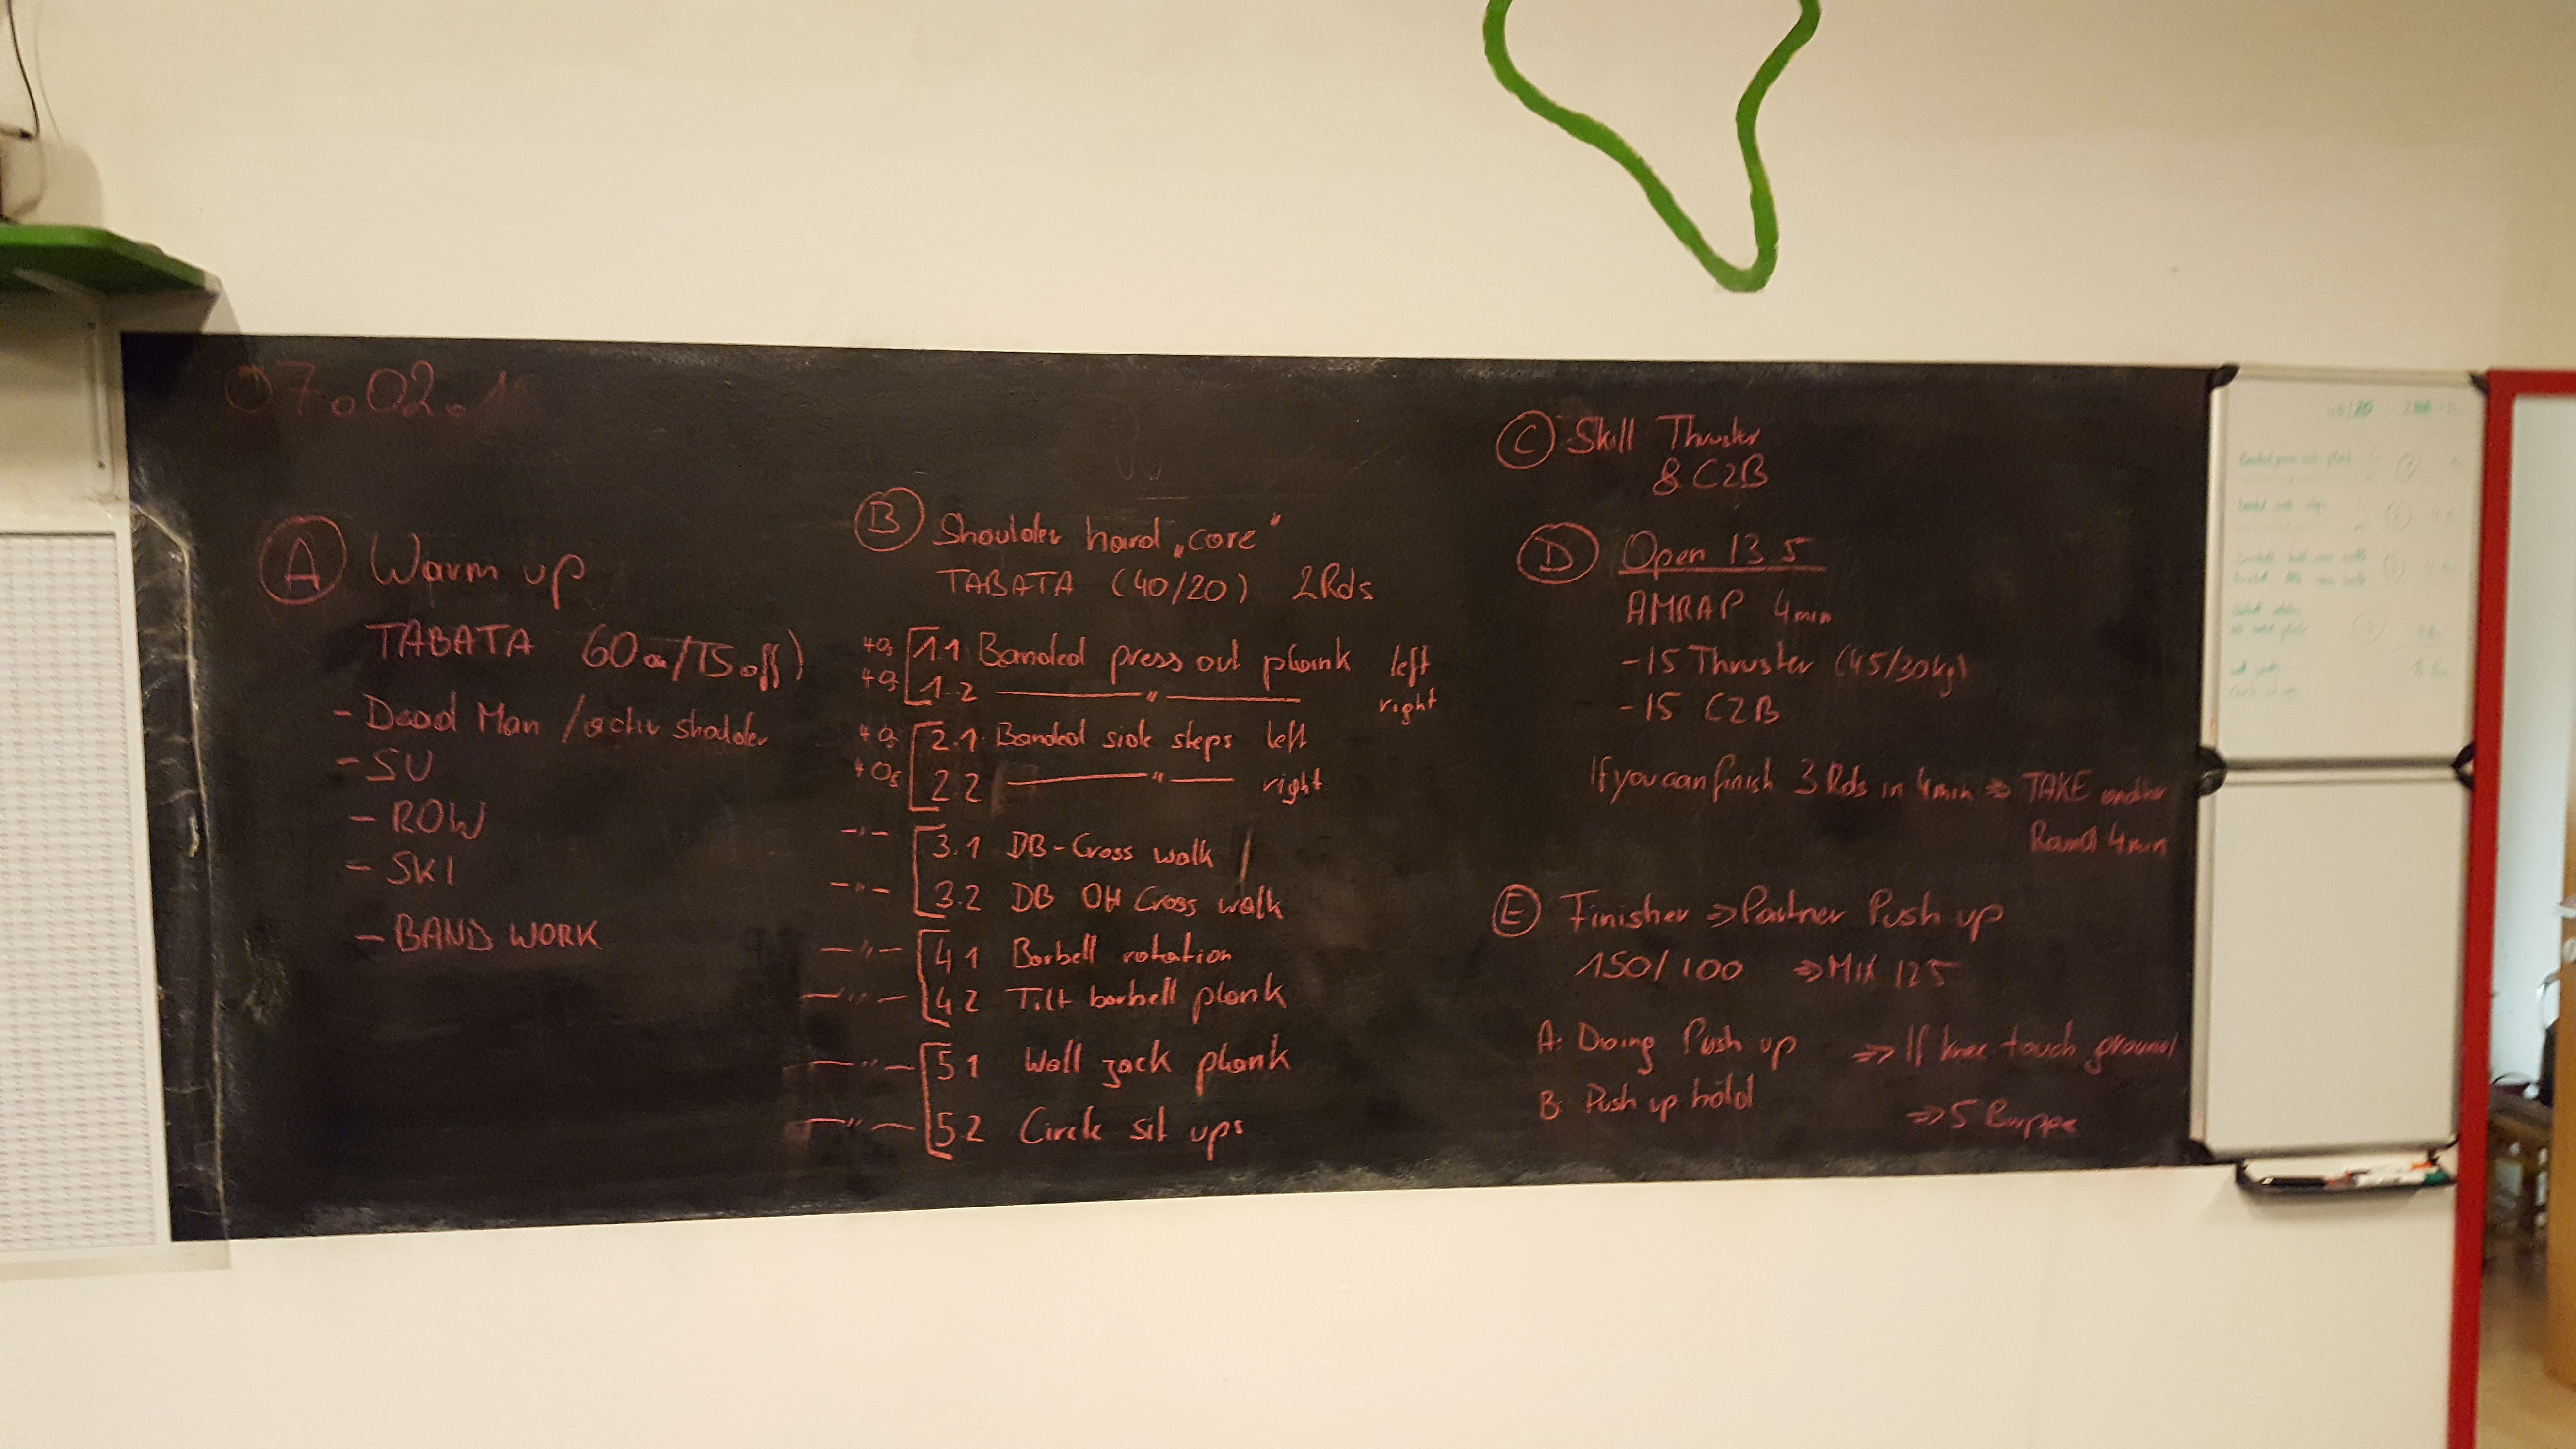 07.02.18
A Warm up
TABATA 60on/15off)
- Dead Man / activ shoulder
- SU
- ROW
- SKI
- BAND WORK
B Shoulder hard „core“
TABATA (40/20) 2Rds
40s 1.1 Banded press out plank left
40s 1.2 —"— right
40s 2.1 Banded side steps left
40s 2.2 —"— right
-"- 3.1 DB-Cross walk /
-"- 3.2 DB OH Cross walk
—"— 4.1 Barbell rotation
—"— 4.2 Tilt barbell plank
—"— 5.1 Wall zack plank
—"— 5.2 Circle sit ups
C Skill Thruster
& C2B
D Open 13.5
AMRAP 4min
-15 Thruster (45/30kg)
-15 C2B
If you can finish 3 Rds in 4min => TAKE another
Round 4min
E Finisher => Partner Push up
150/100 => MIX 125
A: Doing Push up => If knee touch ground
B: Push up hold => 5 Burppe
40/20